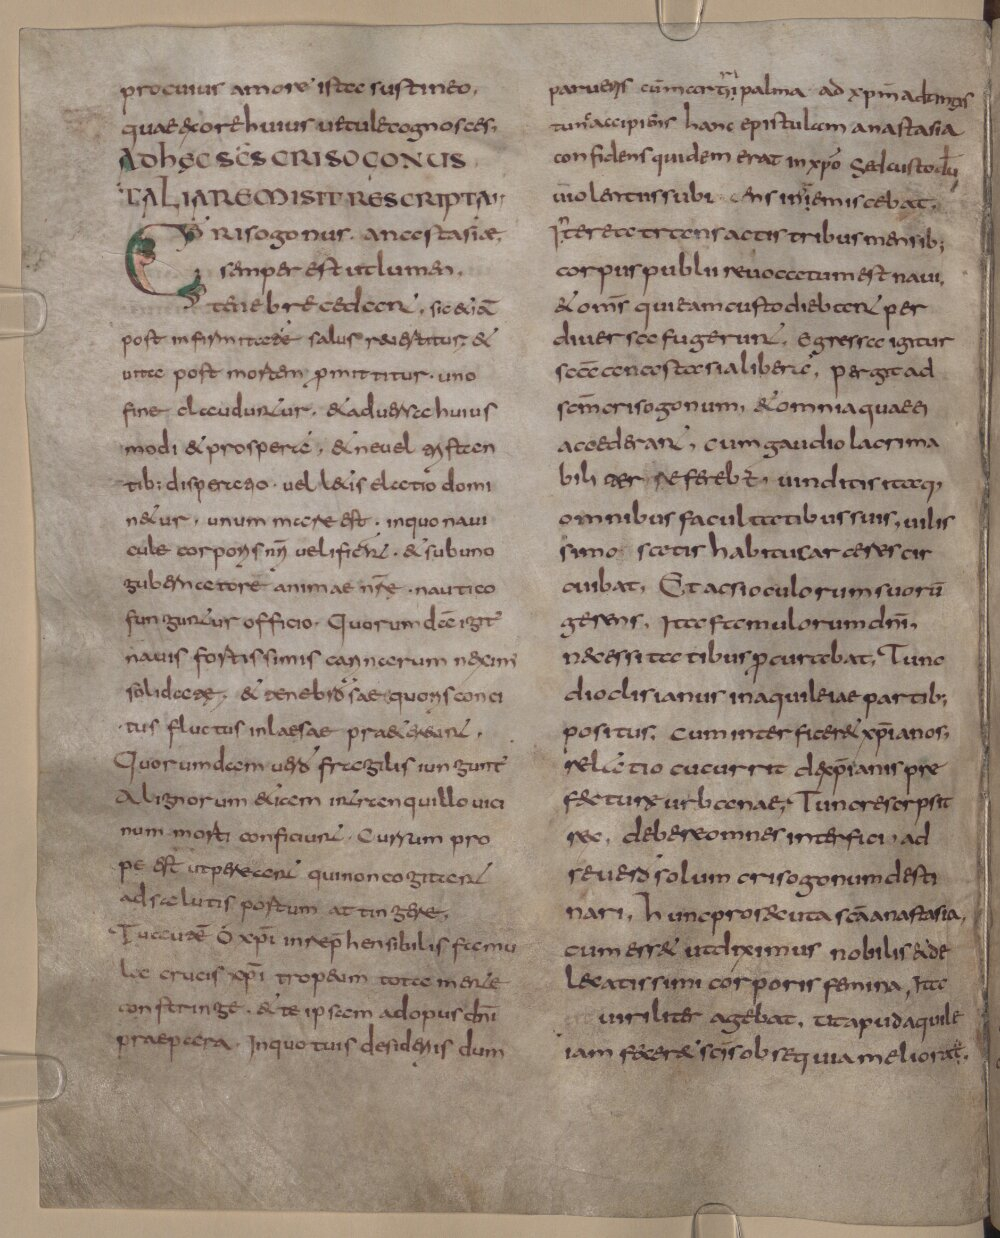 pro cuius amore ista sustineo,
quae & ore huius uetule cognosces,
Ad hęc scs crisogonus
talia remisit rescripta;
Crisogonus. anastasiae,
semper est ut lumen,
tenebre cedant, sic & iā
post infirmitate salus reuertitur; &
uita post mortem pmittitur. uno
fine clauduntur. & aduersa huius
modi & prospera, & ne uel
tib; disperatio. uel l&is elactio domi
n&ur. unum mare est. in quo naui
cule corporis nri uelificant. & sub uno
gubernatore animae nrae. nautico
funguntur officio. Quorumdā igit
nauis fortissimis carinarum nexim
solidatae, & tenebrosae quoris conci
tus fluctus inlaesae praetereunt,
Quorumdam uero fragilis iungunt
Alignorum &iam in tranquillo uici
num morti conficiunt. Cursum pro
pe est ut pereant qui non cogitant
ad salutis portum attingere,
Tu aute O xpi inrephensibilis famu
la crucis xpi tropeum tota mente
constringe. & te ipsam ad opus dni
praepara. In quo tuis desideriis dum
parueris cum martyrii palma ad xpm adtingis
tunc accipiens hanc epistulam anastasia
confidens quidem erat in xpo Sed custodū
uiolentus subi ens inruemiscebat,
Interea transactis tribus mensib;
corpus publii reuocatum est naui,
& oms qui eam custodiebant per
diuersa fugerunt, Egressa igitur
scā anastasia libera, pergit ad
scm crisogonum, & omnia quae ei
accederant, cum gaudio lacrima
bili referebat, uinditis itaq
omnibus facultatibus suis, uilis
simo satis habitu carceres cir
cuibat, Et ac si oculorum suorū
gerens, Ita famulorum dni,
necessitatibus pcurabat, Tunc
dioclisianus in aquileiae partib;
positus, cum interficer& xpianos,
relatio cucurrit de xpianis pre
fecturae urbanae, Tunc rescripsit
rae, debere omnes interfici ad
se uero solum crisogonum desti
nari, hunc prosecuta scā anastasia,
cum esset ut diximus nobilis & de
licatissimi corporis femina, Ita
uiriliter agebat, ut apud aquile
iam facer& scis obsequia meliora,